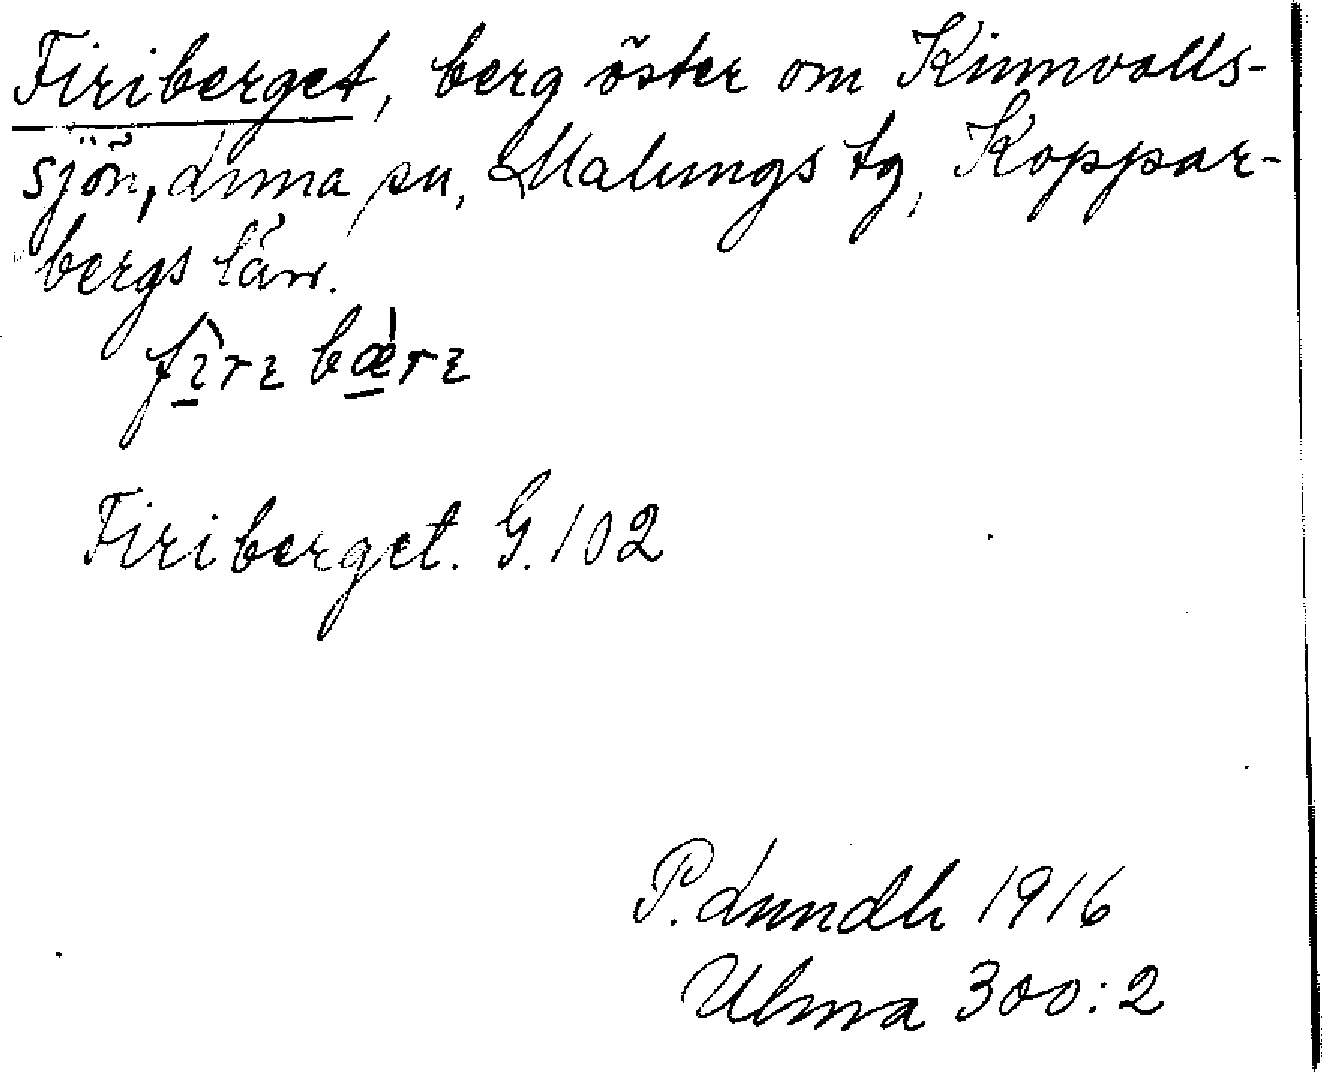 Firiberget, berg öster om Kinnvalls-
sjön, Lima sn, Malungs tg, Koppar-
bergs län.
Firiberget. G. 102
P. Lundh 1916
Ulma 300:2